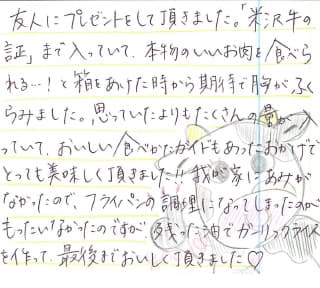 友人にプレゼントをして頂きました。「米沢牛の
証」まで入っていて、本物のいいお肉を食べら
れる…！と箱をあけた時から期待で胸がふく
らみました。思っていたよりもたくさんの量が入
っていて、おいしい食べかたガイドもあったおかげで
とっても美味しく頂きました!!我が家にあみが
なかったので、フライパンの調理になってしまったのが
もったいなかったのですが、残った油でガーリックライス
を作って、最後までおいしく頂きました♡